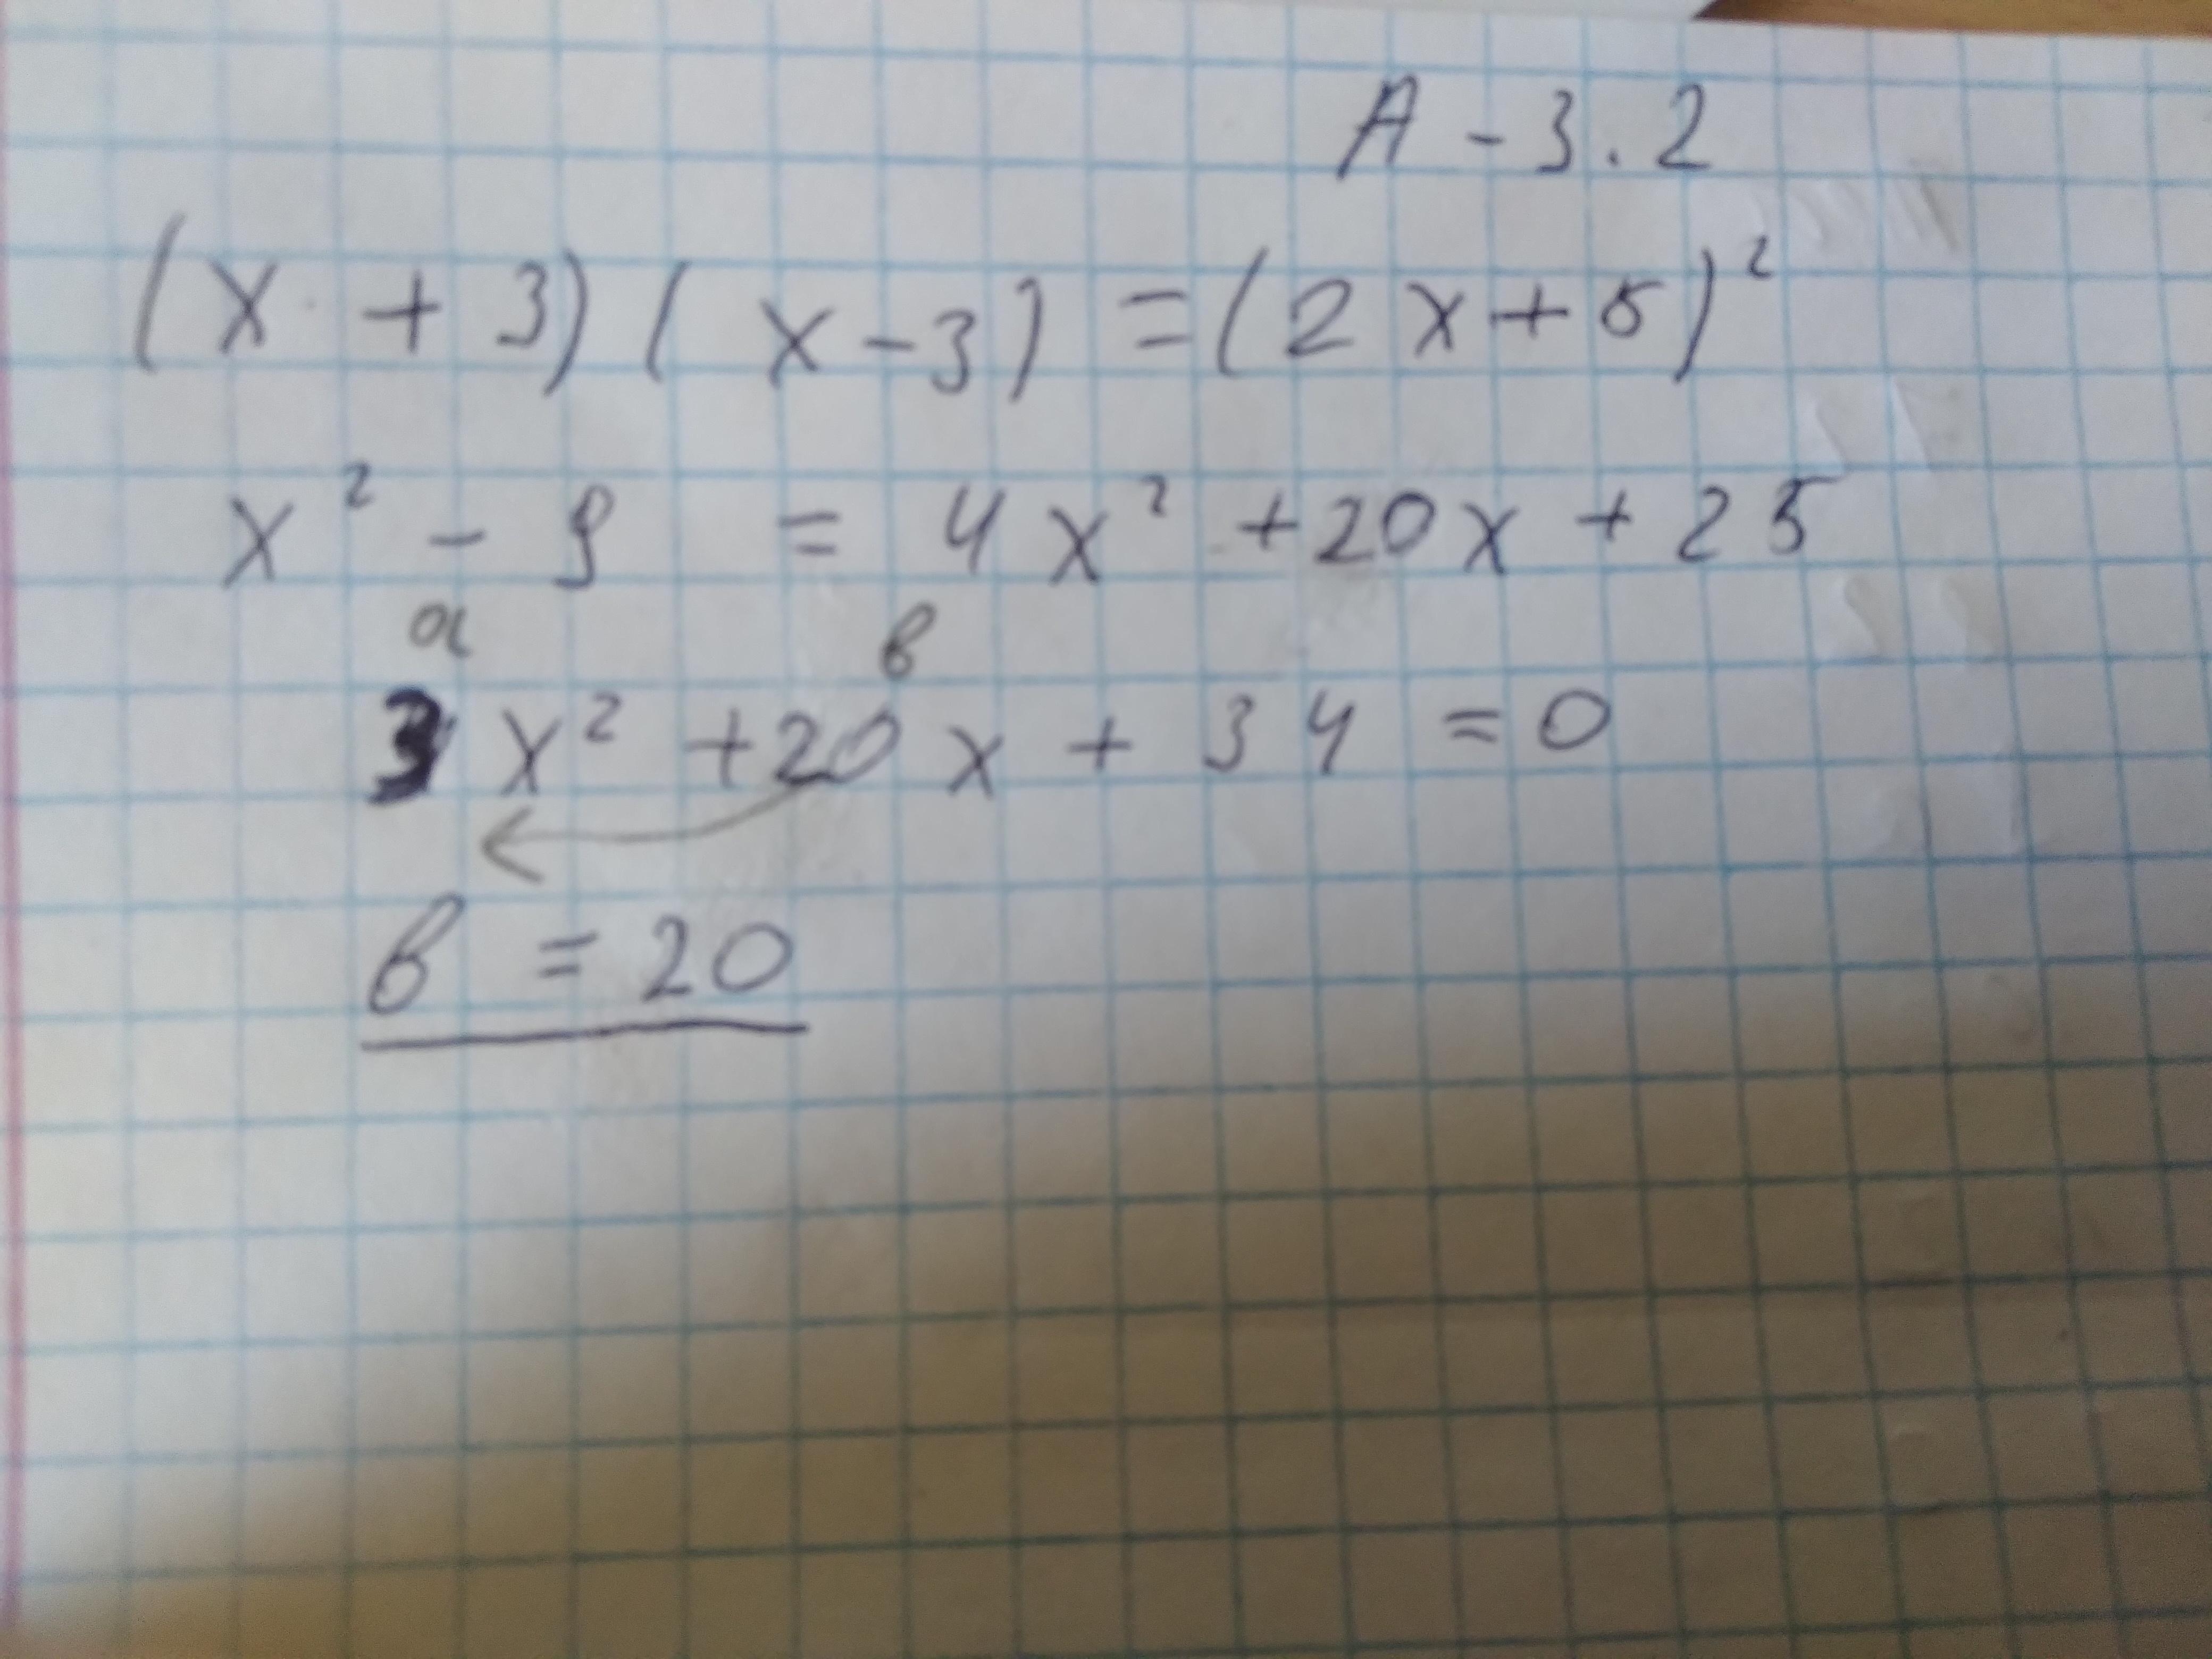 A - 3.2
(x + 3)(x - 3) = (2x + 5)²
x² - 9 = 4x² + 20x + 25
a в
3x² + 20x + 34 = 0
в = 20